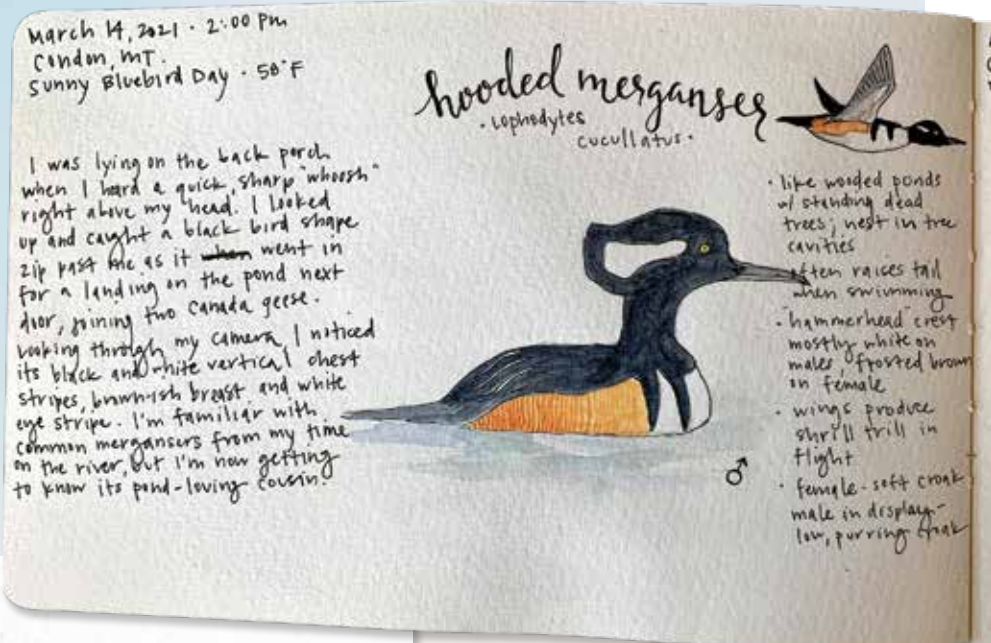 March 14, 2021 · 2:00 pm
Condon, MT.
Sunny Bluebird Day · 50°F
I was lying on the back porch
when I heard a quick, sharp "whoosh"
right above my head. I looked
up and caught a black bird shape
zip past me as it when went in
for a landing on the pond next
door, joining two Canada geese.
Looking through my camera, I noticed
its black and white vertical chest
stripes, brownish breast and white
eye stripe. I'm familiar with
common mergansers from my time
on the river, but I'm now getting
to know its pond-loving cousin.
hooded merganser
· Lophodytes
cucullatus ·
· like wooded ponds
w/ standing dead
trees; nest in tree
cavities
often raises tail
when swimming
· "hammerhead" crest
mostly white on
males, frosted brown
on female
· wings produce
shrill trill in
flight
· female - soft croak
male in display -
low, purring croak
♂